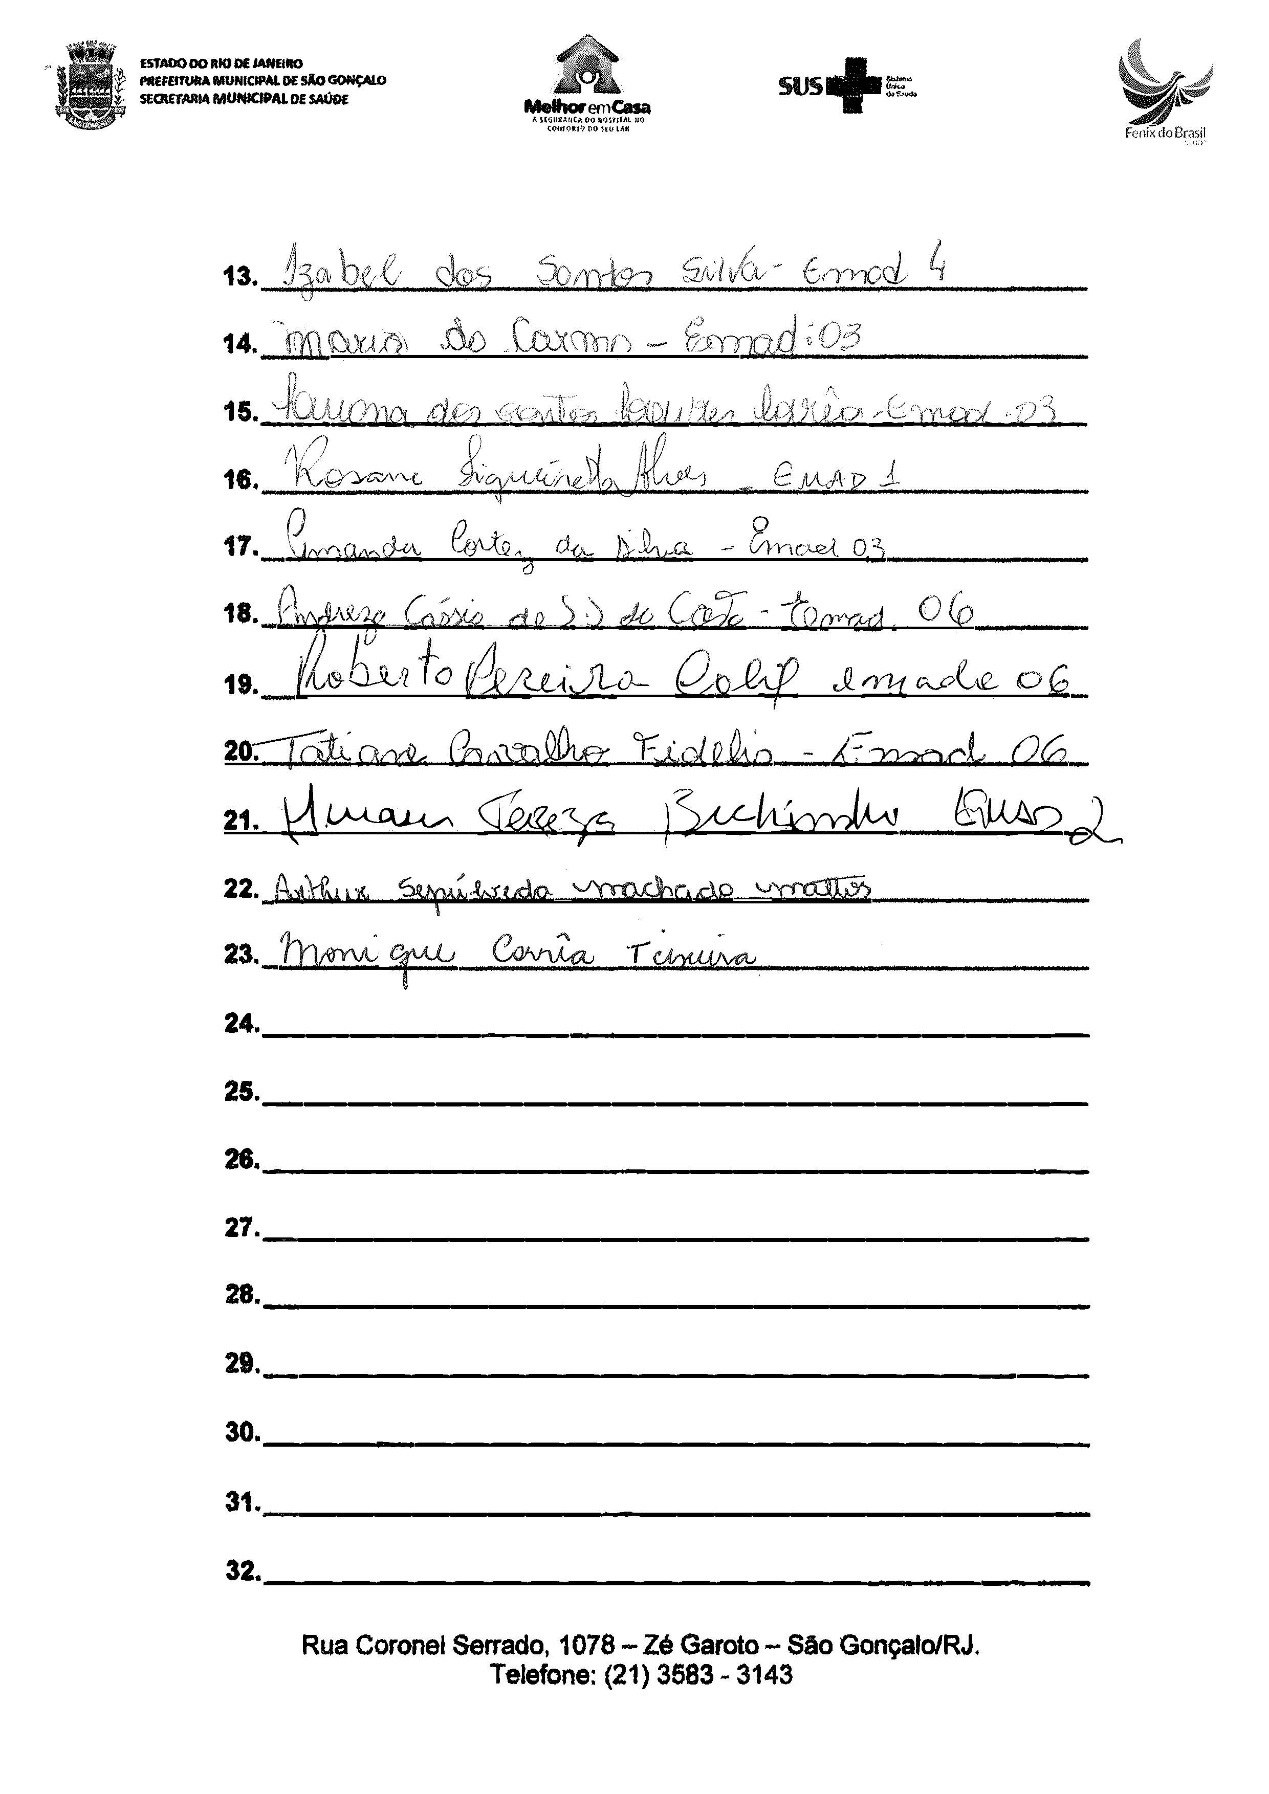 ESTADO DO RIO DE JANEIRO
PREFEITURA MUNICIPAL DE SÃO GONÇALO
SECRETARIA MUNICIPAL DE SAÚDE
Melhor em Casa
A SEGURANÇA DO HOSPITAL NO
CONFORTO DO SEU LAR
SUS Sistema
Único
de Saúde
Fenix do Brasil
13. Izabel dos Santos Silva - Emad 4
14. Maria do Carmo - Emad: 03
15. dos Santos - Emad 03
16. Rosane Alves - EMAD 1
17. Amanda Cortez da Silva - Emad 03
18. Andreza Cássia de de - Emad 06
19. Roberto Pereira emade 06
20. Tatiane Carvalho Fidelis - Emad 06
21. Tereza 2
22. Arthur Sepúlveda Machado Mattos
23. Monique Corrêa Teixeira
24.
25.
26.
27.
28.
29.
30.
31.
32.
Rua Coronel Serrado, 1078 – Zé Garoto – São Gonçalo/RJ.
Telefone: (21) 3583 - 3143